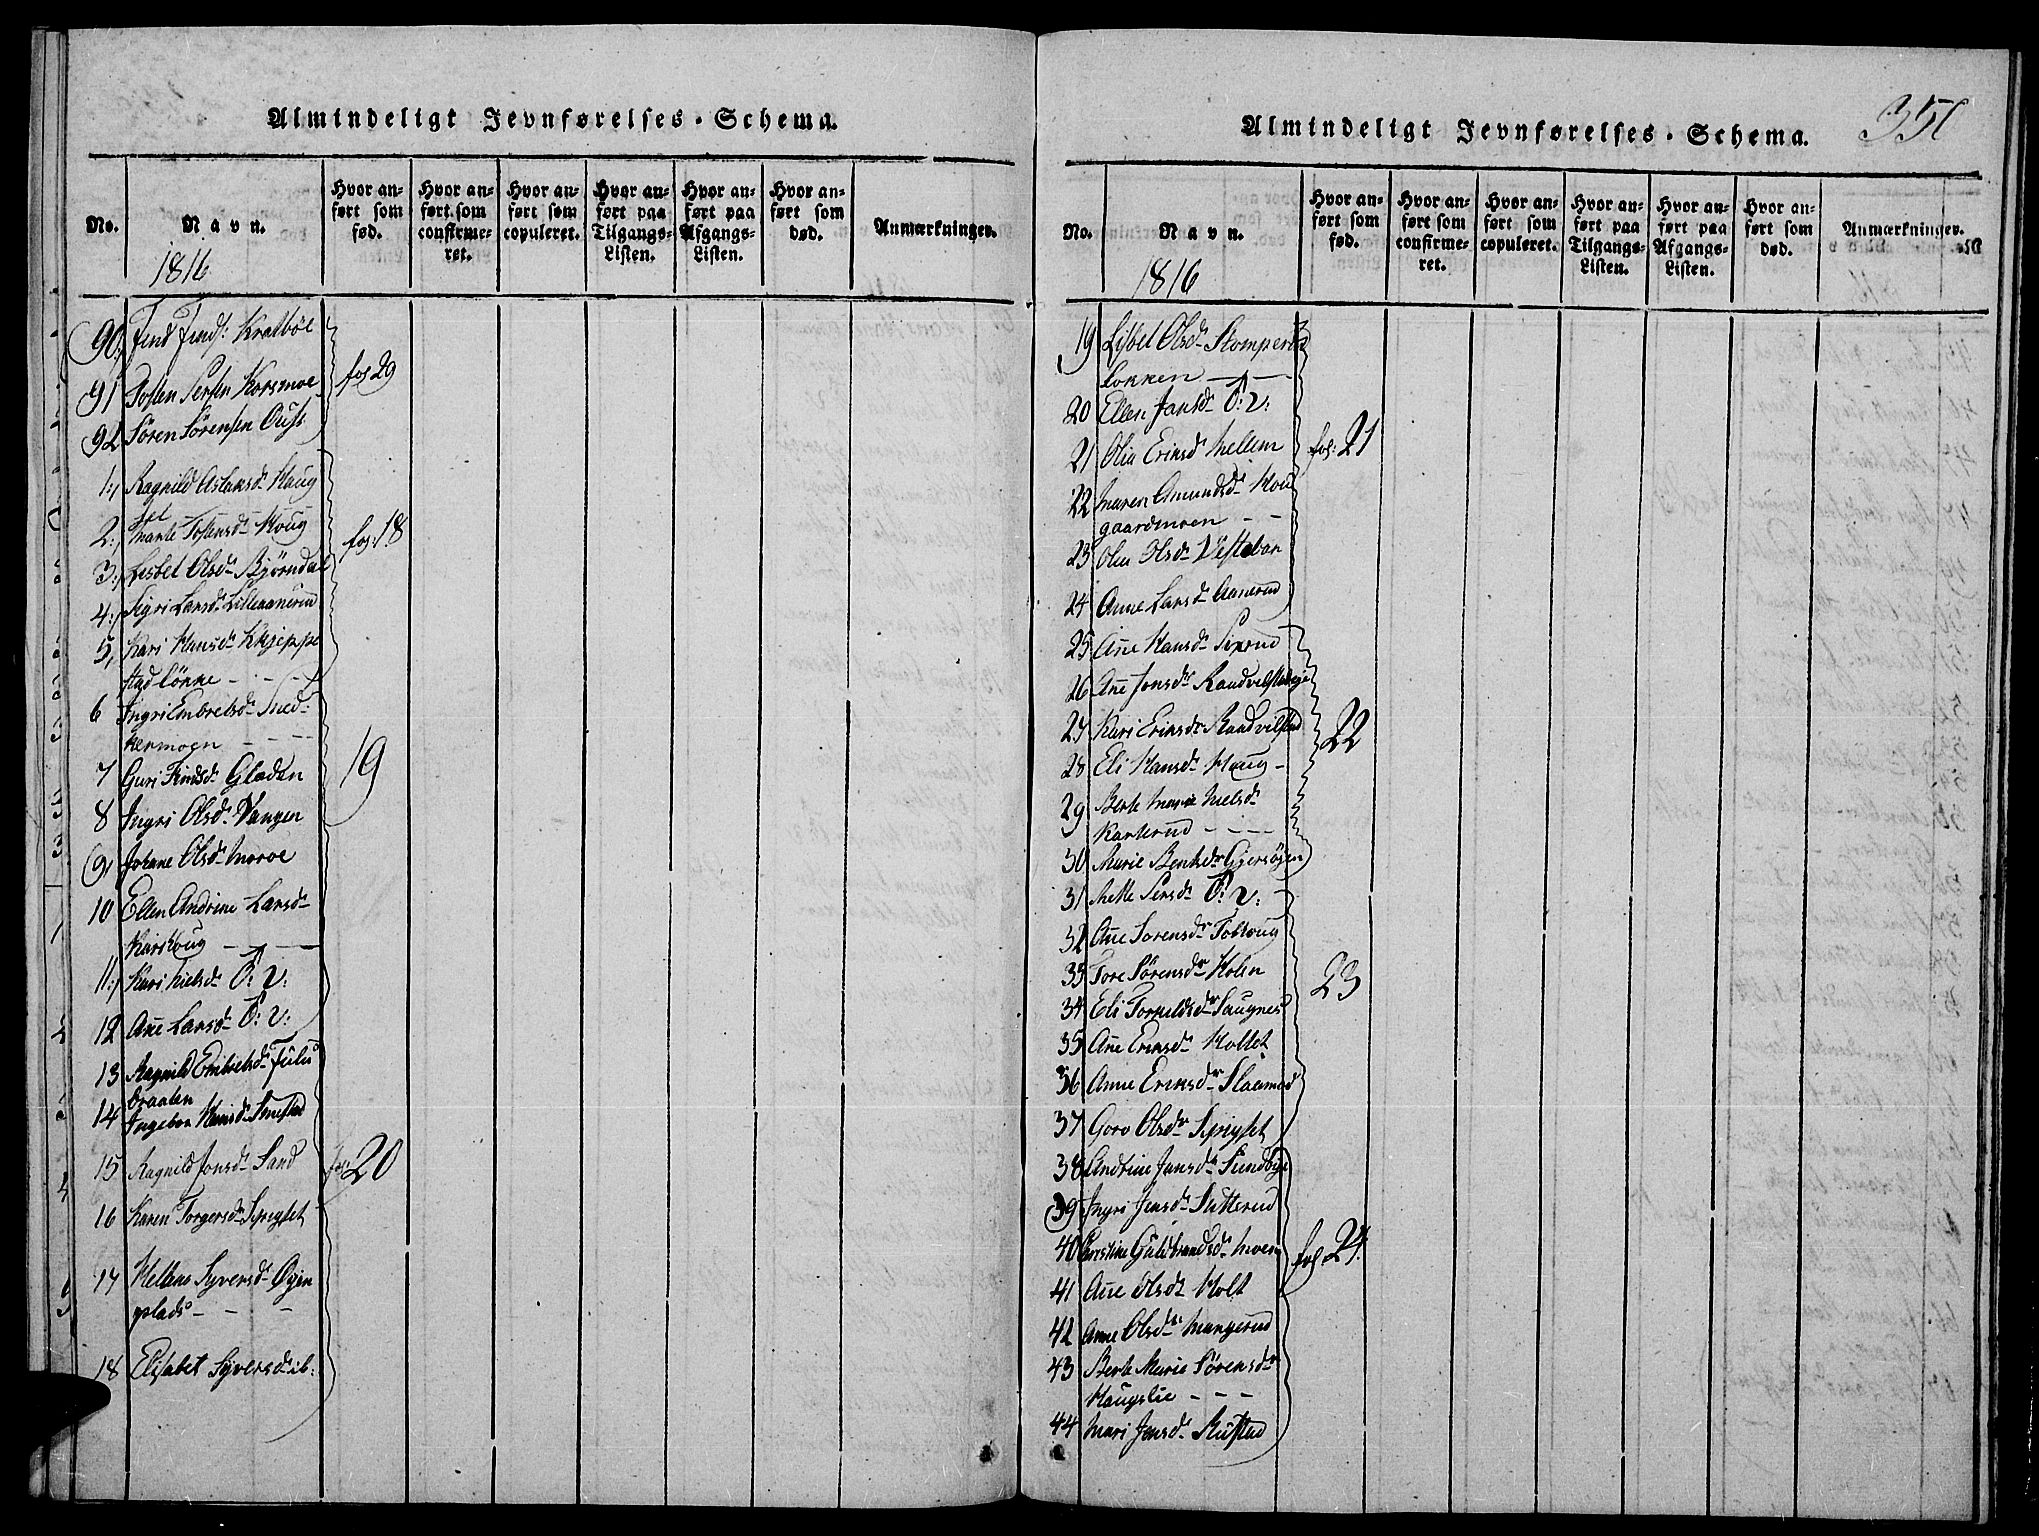 Almindeligt Jevnførelses-Schema.
No.
Navn.
Hvor anført som fød.
Hvor anført som confirmeret.
Hvor anført som copuleret.
Hvor anført paa Tilgangs-Listen.
Hvor anført paa Afgangs-Listen.
Hvor anført som død.
Anmærkninger.
1816
90, Jens Jens:
91 Tosten
92 Sören Sörensen
fol 29
1, Ragnild Aslaksd. Haug
2, Marte Tostensd. Houg
3, Lisbel Olsd. Bjørndal
4, Sigri Larsd. Lilleaanerud
5, Kari Hansd. Kkjeppe
stadlökke
fol: 18
6 Ingri Embretsd.
kermoen
7 Guri Findsd. Gladen
8 Ingri Olsd. Vangen
19
9, Johane Olsd. Moroe
10 Ellen Andrine Larsd.
Karshoug
11, Kari Nielsd. O: V:
12 Ane Larsd. O: V:
13 Ragnild Embretsd. Fulu
braaten
14 Ingebor Hansd.
15 Ragnild Jonsd. Sand
16 Karen Torgersd. Spigset
fol 20
17 Hellene Syversd. Øgin
plads
18 Elisabet Syversd. ib:
Almindeligt Jevnførelses-Schema.
351
No.
Navn.
Hvor anført som fød.
Hvor anført som confirmeret.
Hvor anført som copuleret.
Hvor anført paa Tilgangs-Listen.
Hvor anført paa Afgangs-Listen.
Hvor anført som død.
Anmærkninger.
1816
19 Lisbet Olsd.
lökken
20 Ellen Jansd. O: V:
21 Olia Eriksd. Mellem
fol: 21
22 Maren Amundsd. Hou
gaardmoen
23 Olea Olsd.
24 Anne Larsd. Aanerud
25 Ane Hansd.
26 Ane Jonsd.
27 Kari Eriksd. Raadvilstad
22
28 Eli Hansd. Houg
29 Berte Marie Nielsd.
Karterud
30 Marie Bentsd. Gjersöyen
31 Mette Persd. O: V:
32 Ane Sorensd. Tolhoug
33 Tore Sörensd. Holen
34 Eli Torkeldsd. Saugnes
23
35 Ane Eriksd. Holtet
36 Anne Eriksd. Slaamod
37 Goro Olsd. Spigset
38 Andrine Jansd. Sundbye
39 Ingri Jensd. Slitterud
40 Cristine Guldbrandsd. Moen
fol 24
41 Ane Olsd. Holt
42 Anne Olsd. Mangerud
43 Berte Marie Sörensd.
Haugslie
44 Mari Jensd. Rustad